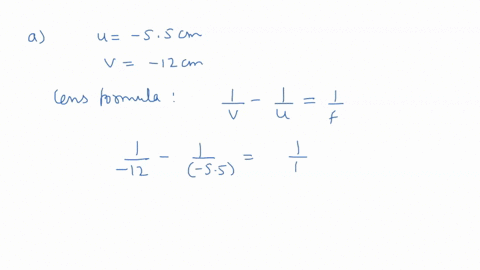 a) u = -5.5 cm
v = -12 cm
lens formula : 1/v - 1/u = 1/f
1/-12 - 1/(-5.5) = 1/1